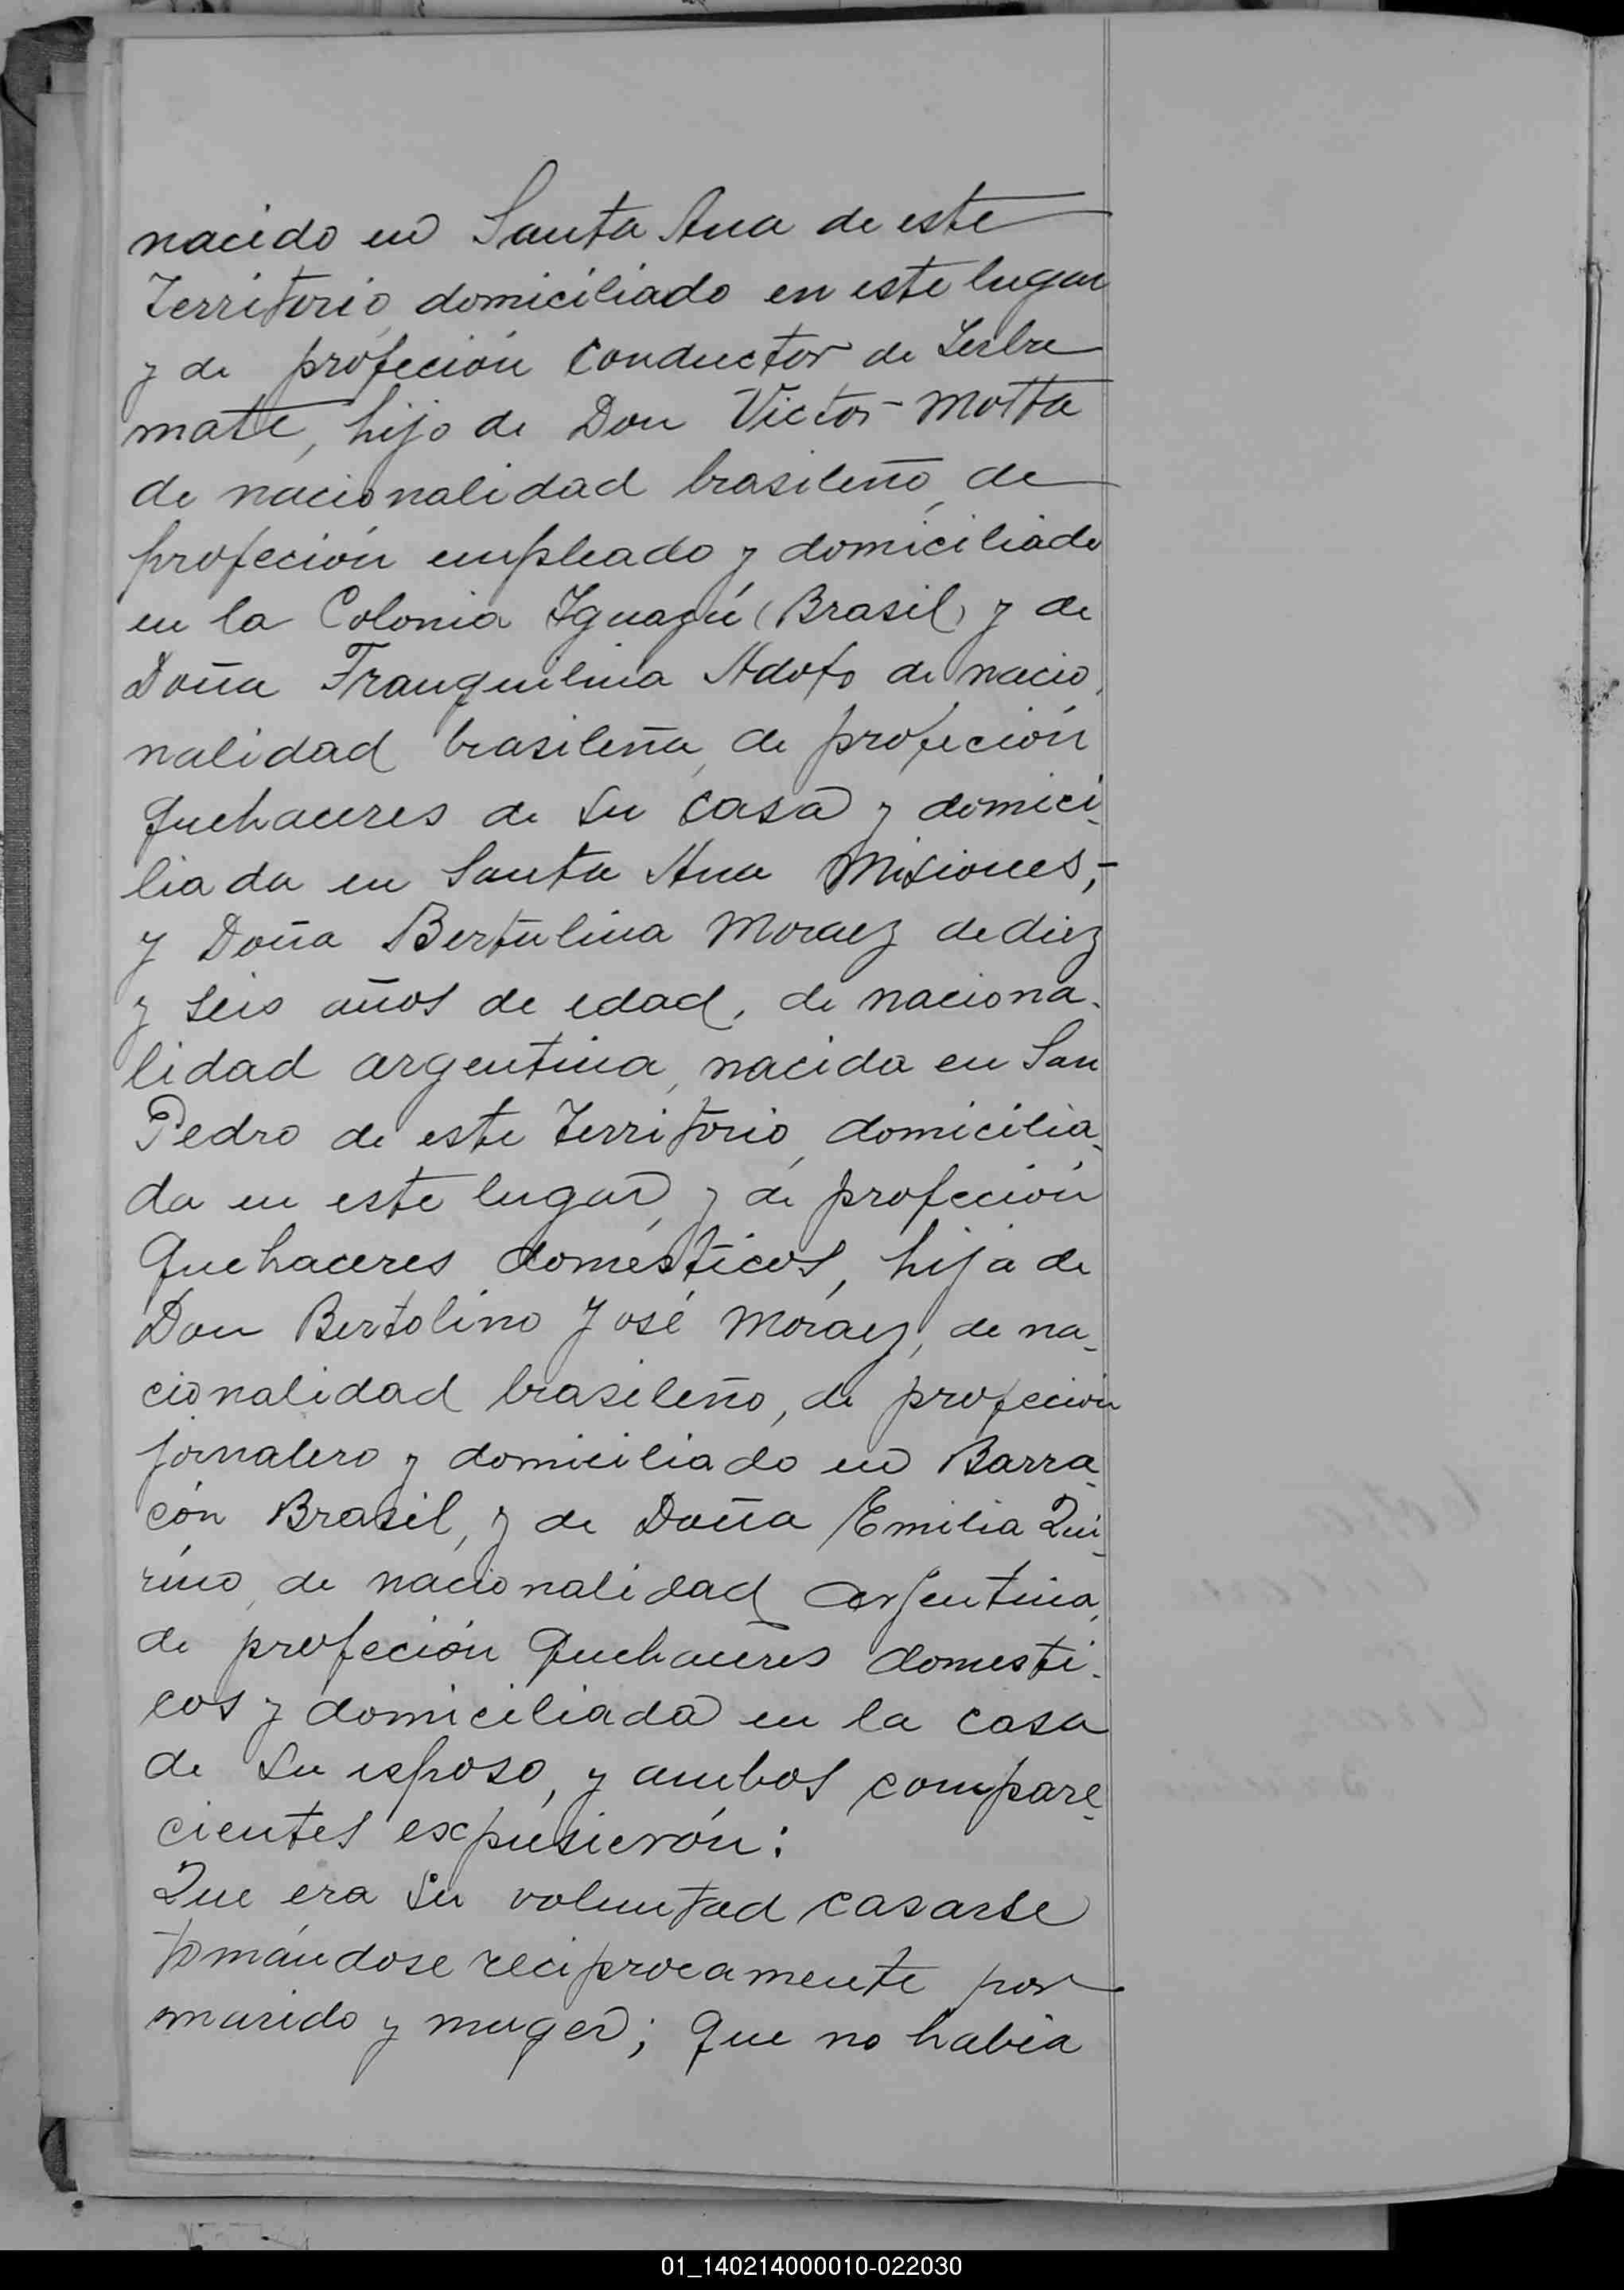 nacido en Santa Ana de este
Territorio, domiciliado en este lugar
y de profeción conductor de Yerba
mate, hijo de Don Victor Motta
de nacionalidad brasileño, de
profeción empleado y domiciliado
en la Colonia Iguazú (Brasil) y de
Doña Tranquilina Adofo de nacio-
nalidad brasileña, de profeción
quehaceres de su casa y domici-
liada en Santa Ana Misiones,-
y Doña Bertulina Moraez de diez
y seis años de edad, de naciona-
lidad argentina, nacida en San
Pedro de este Territorio, domicilia-
da en este lugar, y de profeción
quehaceres domésticos, hija de
Don Bertolino José Moraez, de na-
cionalidad brasileño, de profeción
jornalero y domiciliado en Barra-
cón Brasil, y de Doña Emilia Qui-
rino, de nacionalidad argentina,
de profeción quehaceres domesti-
cos y domiciliada en la casa
de su esposo, y ambos compare-
cientes expusierón:
Que era su voluntad casarse
tomándose reciprocamente por
marido y muger; que no habia
01_140214000010-022030